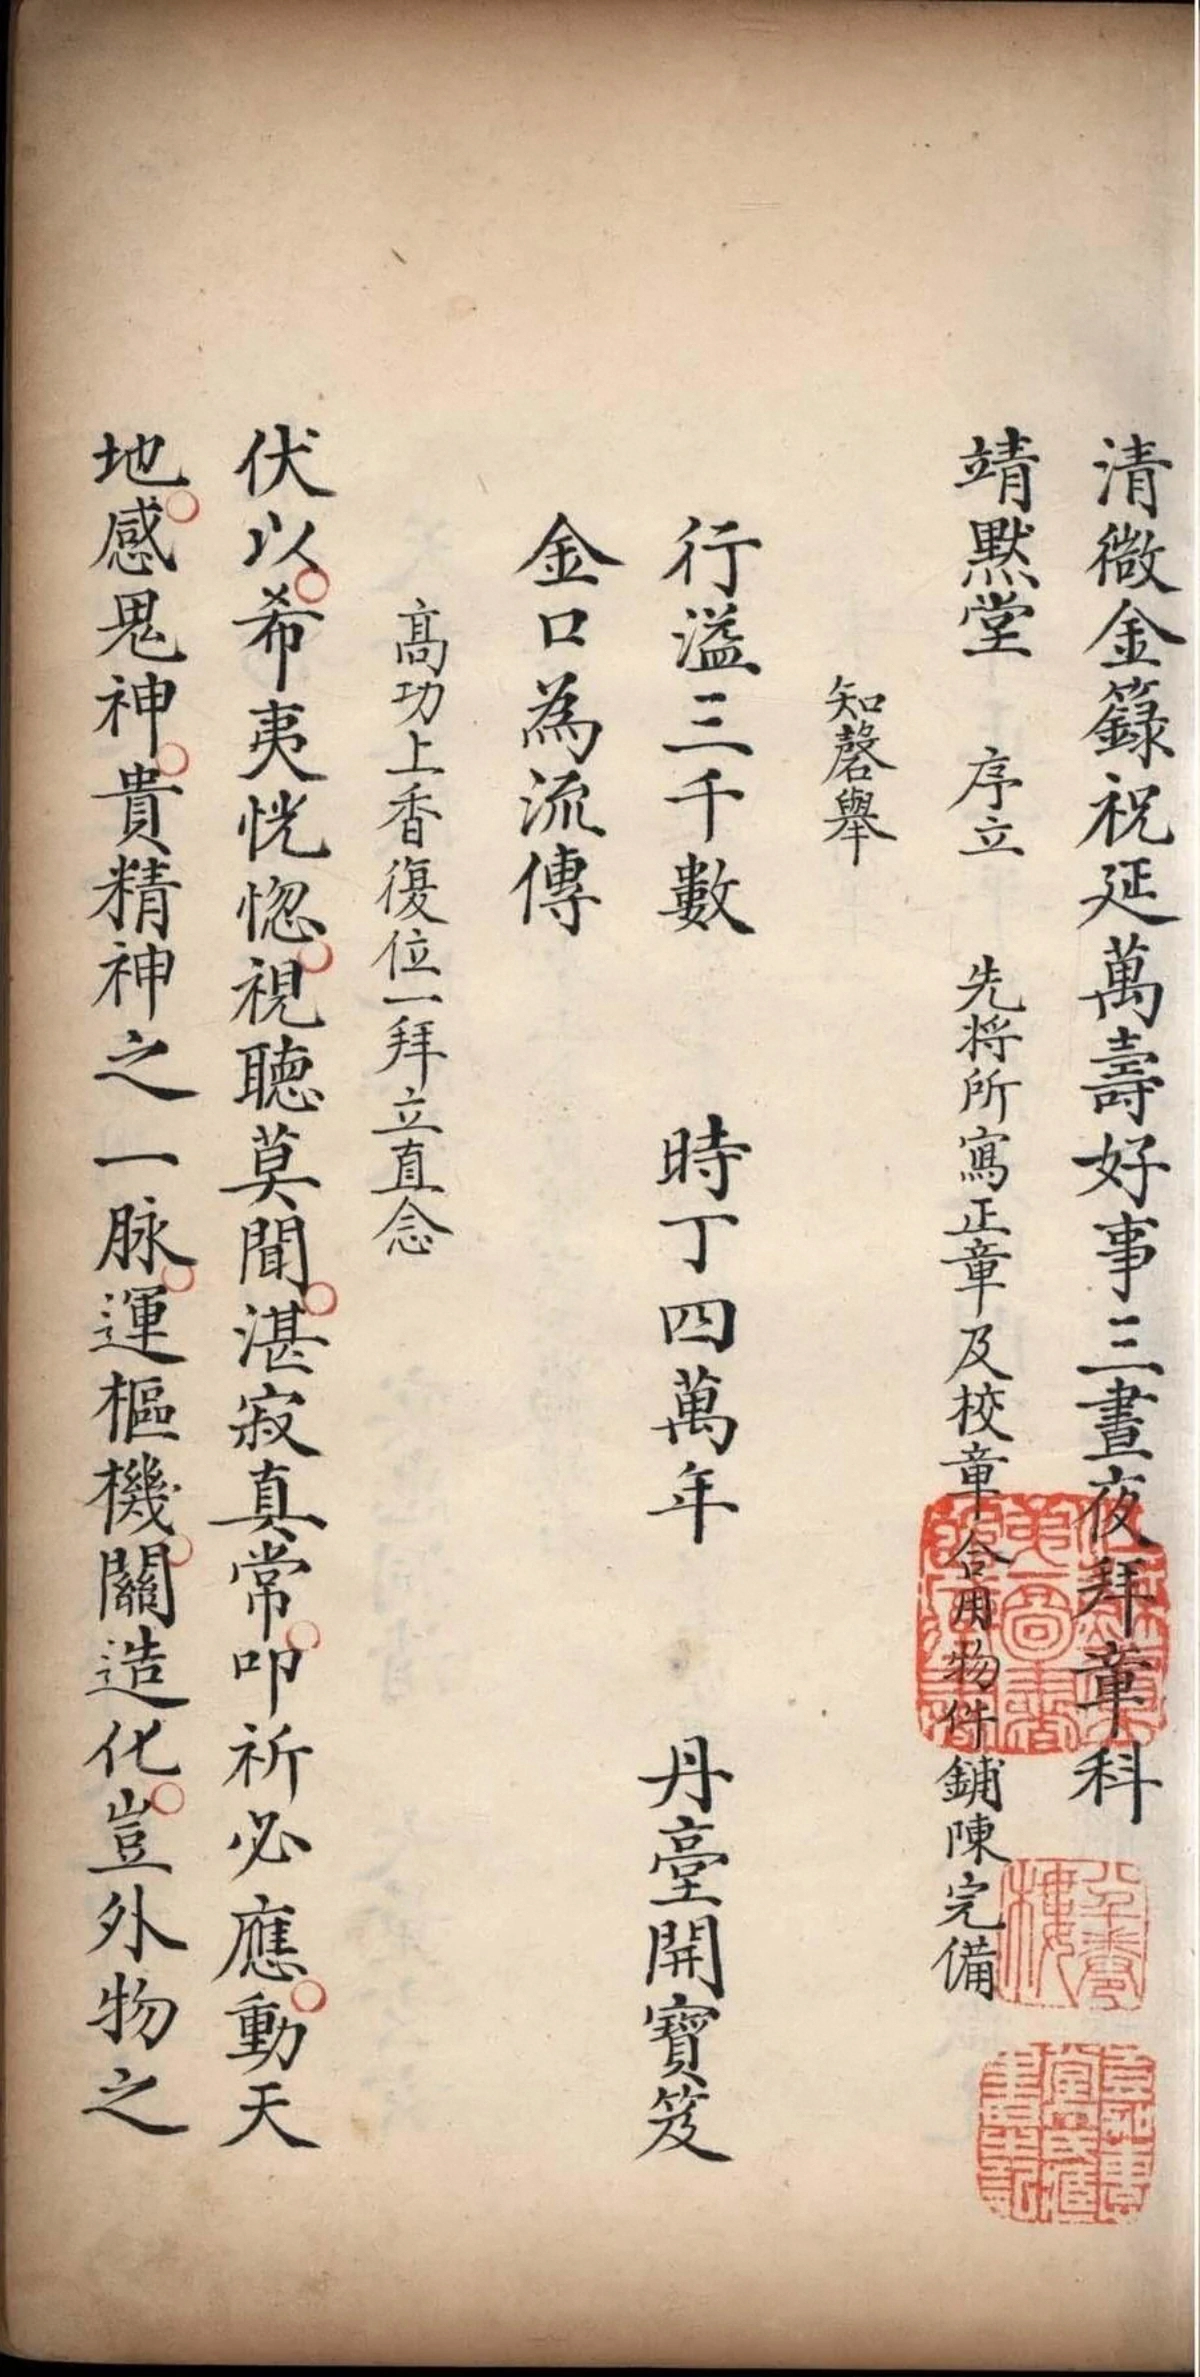 清微金籙祝延萬壽好事三晝夜拜章科
靖默堂 序立 先將所寫正章及校章合用物件鋪陳完備
知磬舉
行溢三千數 時丁四萬年 丹臺開寶笈
金口為流傳
高功上香復位一拜立直念
伏以希夷恍惚視聽莫聞湛寂真常叩祈必應動天
地感鬼神貴精神之一脉運樞機關造化豈外物之